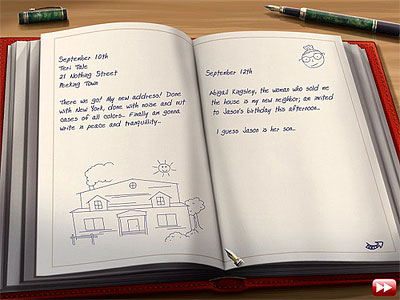 September 10th
Teri Tale
21 Nothing Street
Peeking Town
There we go! My new address! Done
with New York, done with noise and nut
cases of all colors... Finally am gonna
write in peace and tranquility...
September 12th
Abigail Kingsley, the woman who sold me
the house is my new neighbor; am invited
to Jason's birthday this afternoon...
I guess Jason is her son...